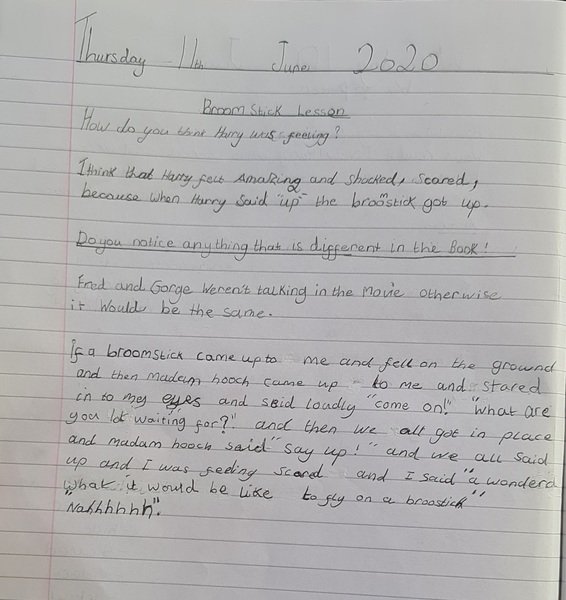 Thursday 11th June 2020
Broom Stick Lesson
How do you think Harry was feeling?
I think that Harry felt Amazing and shocked, scared,
because when Harry said "up" the broomstick got up.
Do you notice anything that is different in the Book!
Fred and Gorge weren't talking in the movie otherwise
it would be the same.
If a broomstick came up to me and fell on the ground
and then madam hooch came up to me and stared
in to my eyes and said loudly "come on!" "what are
you lot waiting for?" and then we all got in place
and madam hooch said "say up!" and we all said
up and I was feeling scard and I said "a wonderd
what it would be like to fly on a broostick"
"Nahhhhhh".